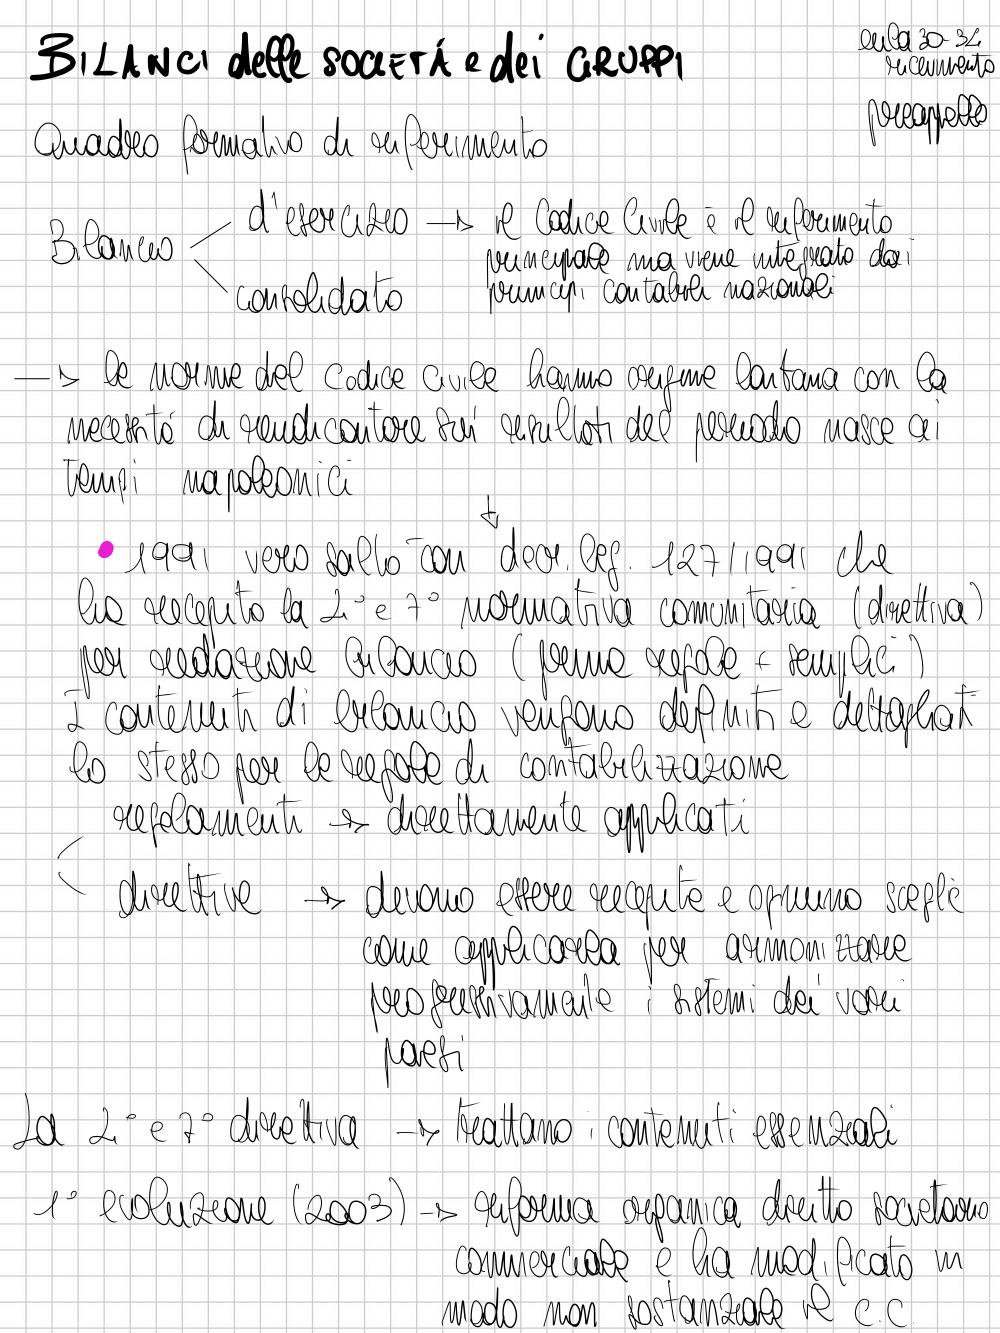 BILANCI delle SOCIETÁ e dei GRUPPI
aula 30-34
ricevimento
preappello
Quadro formativo di riferimento
Bilancio
d'esercizio → il Codice Civile è il riferimento
principale ma viene integrato dai
principi contabili nazionali
consolidato
→ le norme del codice civile hanno origine lontana con la
necessitá di rendicontare sui risultati del periodo nasce ai
tempi napoleonici
↓
• 1991 vero salto con decr. leg. 127/1991 che
ha recepito la 4° e 7° normativa comunitaria (direttiva)
per redazione bilancio (prima regole + semplici)
I contenuti di bilancio vengono definiti e dettagliati
lo stesso per le regole di contabilizzazione
regolamenti → direttamente applicati
direttive → devono essere recepite e ognuno sceglie
come applicarla per armonizzare
progressivamente i sistemi dei vari
paesi
La 4° e 7° direttiva → trattano i contenuti essenziali
1° evoluzione (2003) → riforma organica diritto societario
commerciale e ha modificato in
modo non sostanziale il c.c.